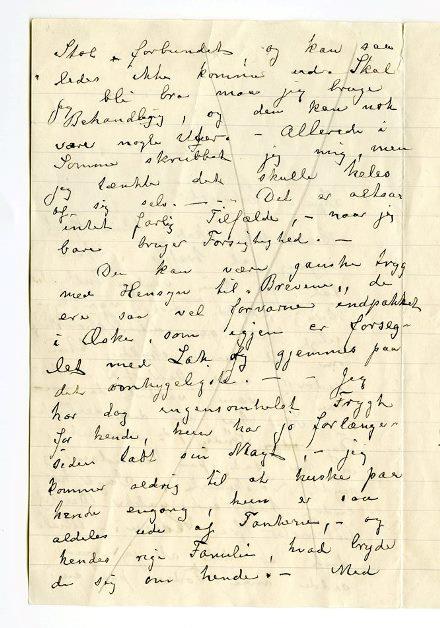 Stol forbundet, og kan saa
ledes ikke komme ud. Skal
jeg bli bra maa jeg bruge
Behandling, og den kan nok
være nogle Uger. – Allerede i
Somme skrubbet jeg mig, men
jeg tænkte det skulle heles
af sig selv. – – – Det er altsaa
intet farlig Tilfælde, – naar jeg
bare bruger Forsigtighed. –
Du kan være ganske tryg
med Hensyn til "Brevene", de
ere saa vel forvarne indpakket
i Æske, som igjen er forseg-
let med Lak og gjemmes paa
det omhygeligste. – – Jeg
har dog ingensomhelst Frygt
for hende, hun har jo forlænge-
siden tabt sin Magt, – jeg
kommer aldrig til at huske paa
hende engang, hun er saa
aldeles ude af Tankerne, – og
hendes rige Familie, hvad bryde
de sig om hende. – Med